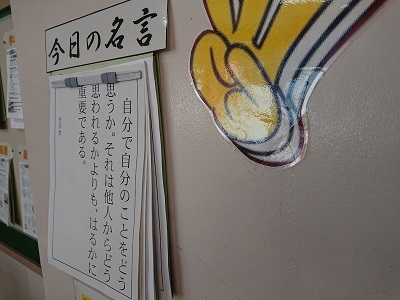 今日の名言
自分で自分のことをどう
思うか。それは他人からどう
思われるかよりも、はるかに
重要である。
セネカ